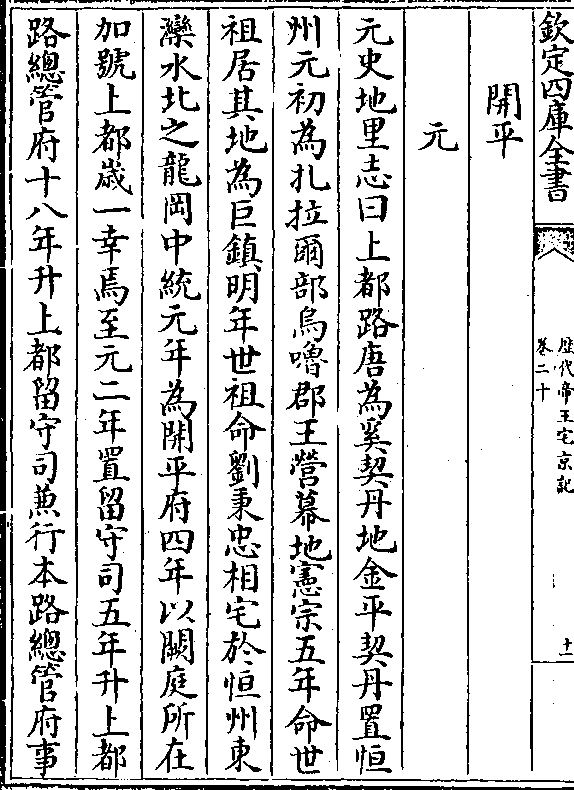 欽定四庫全書
歷代帝王宅京記
卷二十
十一
開平
元
元史地里志曰上都路唐為奚契丹地金平契丹置恒
州元初為扎拉爾部烏嚕郡王營幕地憲宗五年命世
祖居其地為巨鎮明年世祖命劉秉忠相宅於恒州東
灤水北之龍岡中統元年為開平府四年以闕庭所在
加號上都歲一幸焉至元二年置留守司五年升上都
路總管府十八年升上都留守司兼行本路總管府事